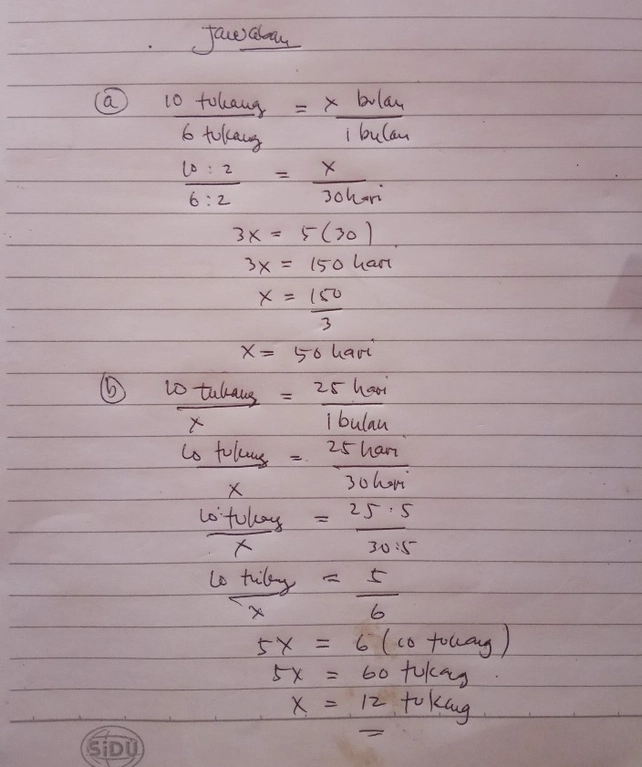 Jawaban
(a) 10 tukang / 6 tukang = x bulan / 1 bulan
10 : 2 / 6 : 2 = x / 30 hari
3x = 5(30)
3x = 150 hari
x = 150 / 3
x = 50 hari
(b) 10 tukang / x = 25 hari / 1 bulan
10 tukang / x = 25 hari / 30 hari
10 tukang / x = 25 : 5 / 30 : 5
10 tukang / x = 5 / 6
5x = 6 (10 tukang)
5x = 60 tukang
x = 12 tukang
SiDU